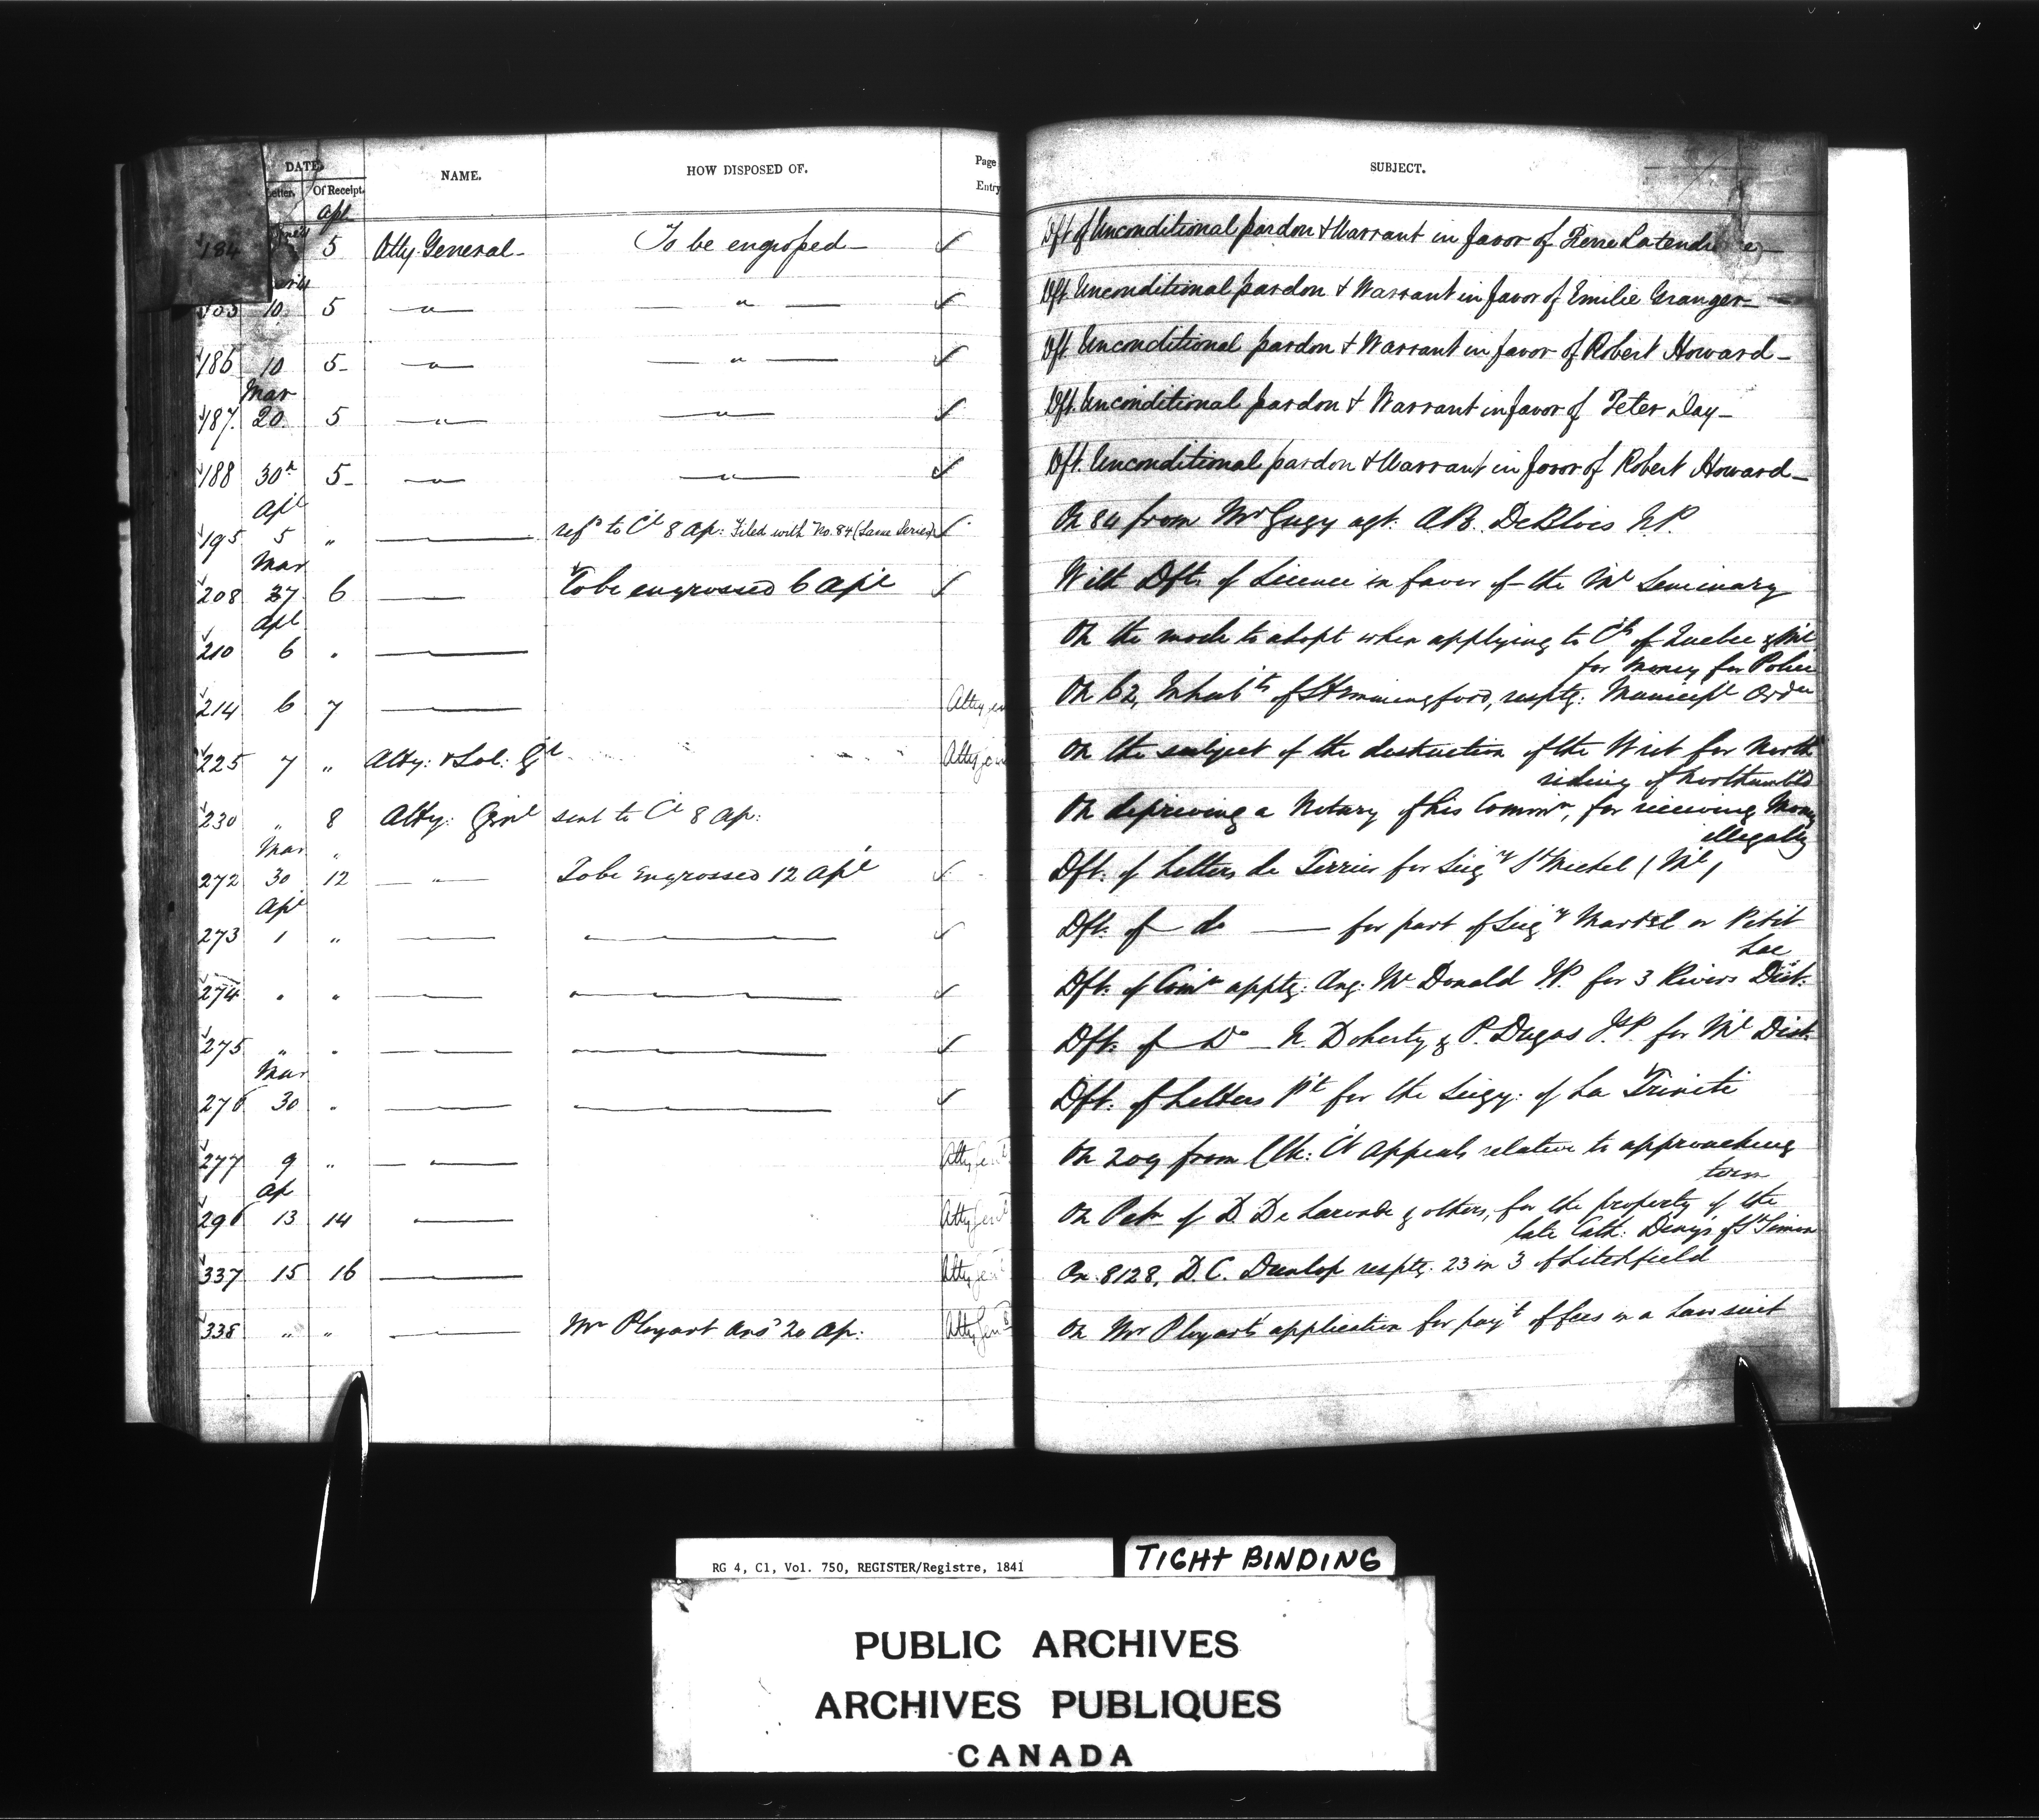 DATE.
Letter. Of Receipt. NAME. HOW DISPOSED OF. Page Entry SUBJECT.
Apl
184 5 Atty General - To be engrossed - ✓ Dft of Unconditional pardon & Warrant in favor of Pierre
10 5 " " ✓ Dft Unconditional pardon & Warrant in favor of Emilie Granger -
186 10 5 " " ✓ Dft Unconditional pardon & Warrant in favor of Robert Howard -
Mar
187 20 5 " " ✓ Dft. Unconditional pardon & Warrant in favor of Peter Day -
188 30 5 " " ✓ Dft. Unconditional pardon & Warrant in favor of Robert Howard -
Apl
195 5 " — refd to Cl 8 Ap: Filed with No. 84 (Same Series) ✓ On 84 from Mr Gugy agt: A.B. DeBlois N.P.
Mar
208 27 6 — To be engrossed 6 Apl ✓ With Dft. of Licence in favor of the Ml Seminary
Apl
210 6 " — On the mode to adopt when applying to Cls of Quebec & Ml
for Money for Police
214 6 7 — Atty Gen On 62, Inhabts of Hemmingford, resptg: Municipl Order
225 7 " Atty: & Sol: Gl Atty Gen On the subject of the destruction of the Writ for North
riding of Northumbld
230 " 8 Atty: Genl sent to Cl 8 Ap: On depriving a Notary of his Commn, for receiving Money
illegally
Mar "
272 30 12 — " — To be engrossed 12 Apl ✓ Dft: of Letters de Terrier for Seigy St Michel (Ml)
Apl
273 1 " — — ✓ Dft: of do — for part of Seigy Martel or Petit
Lac
274 " " — — ✓ Dft: of Comn apptg: Ang: McDonald J.P. for 3 Rivers Dist:
275 " " — — ✓ Dft: of Do — N. Doherty & P. Dugas J.P. for Ml Dist:
Mar
276 30 " — — ✓ Dft: of Letters Pt for the Seigy: of La Trinité
277 9 " — Atty Genl On 209 from Clk: Ct Appeals relative to approaching
term
Ap
296 13 14 — Atty Genl On Petn of D. De Laronde & others, for the property of the
late Cath: Denys of St Simon
337 15 16 — Atty Genl On 8128, D.C. Dunlop resptg: 23 in 3 of Litchfield
338 " " — Mr Ployart ansd 20 Ap: Atty Genl On Mr Ployart's application for payt of fees in a Lawsuit
RG 4, C1, Vol. 750, REGISTER/Registre, 1841
TIGHT BINDING
PUBLIC ARCHIVES
ARCHIVES PUBLIQUES
CANADA